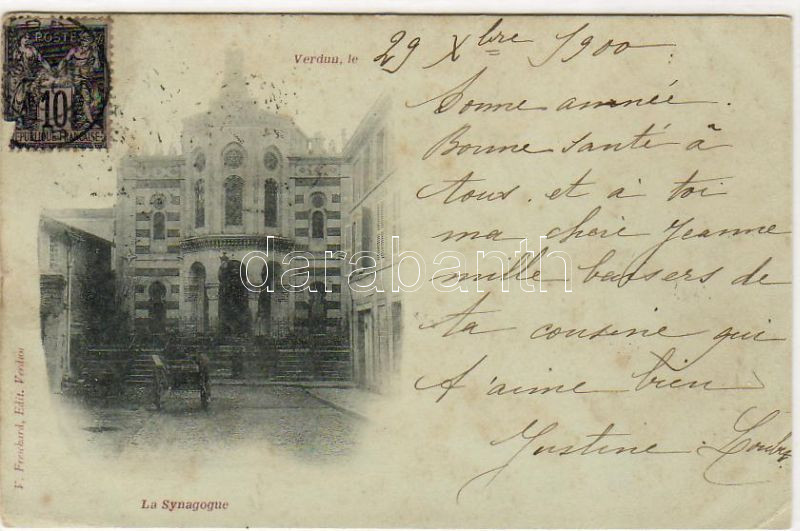 POSTE
10
REPUBLIQUE FRANCAISE
Verdun, le 29 Xbre 1900
Bonne année.
Bonne santé à
tous. et à toi
ma chère Jeanne
mille baisers de
ta cousine qui
t'aime bien
Justine
darabanth
V. Freschard, Edit. Verdun
La Synagogue